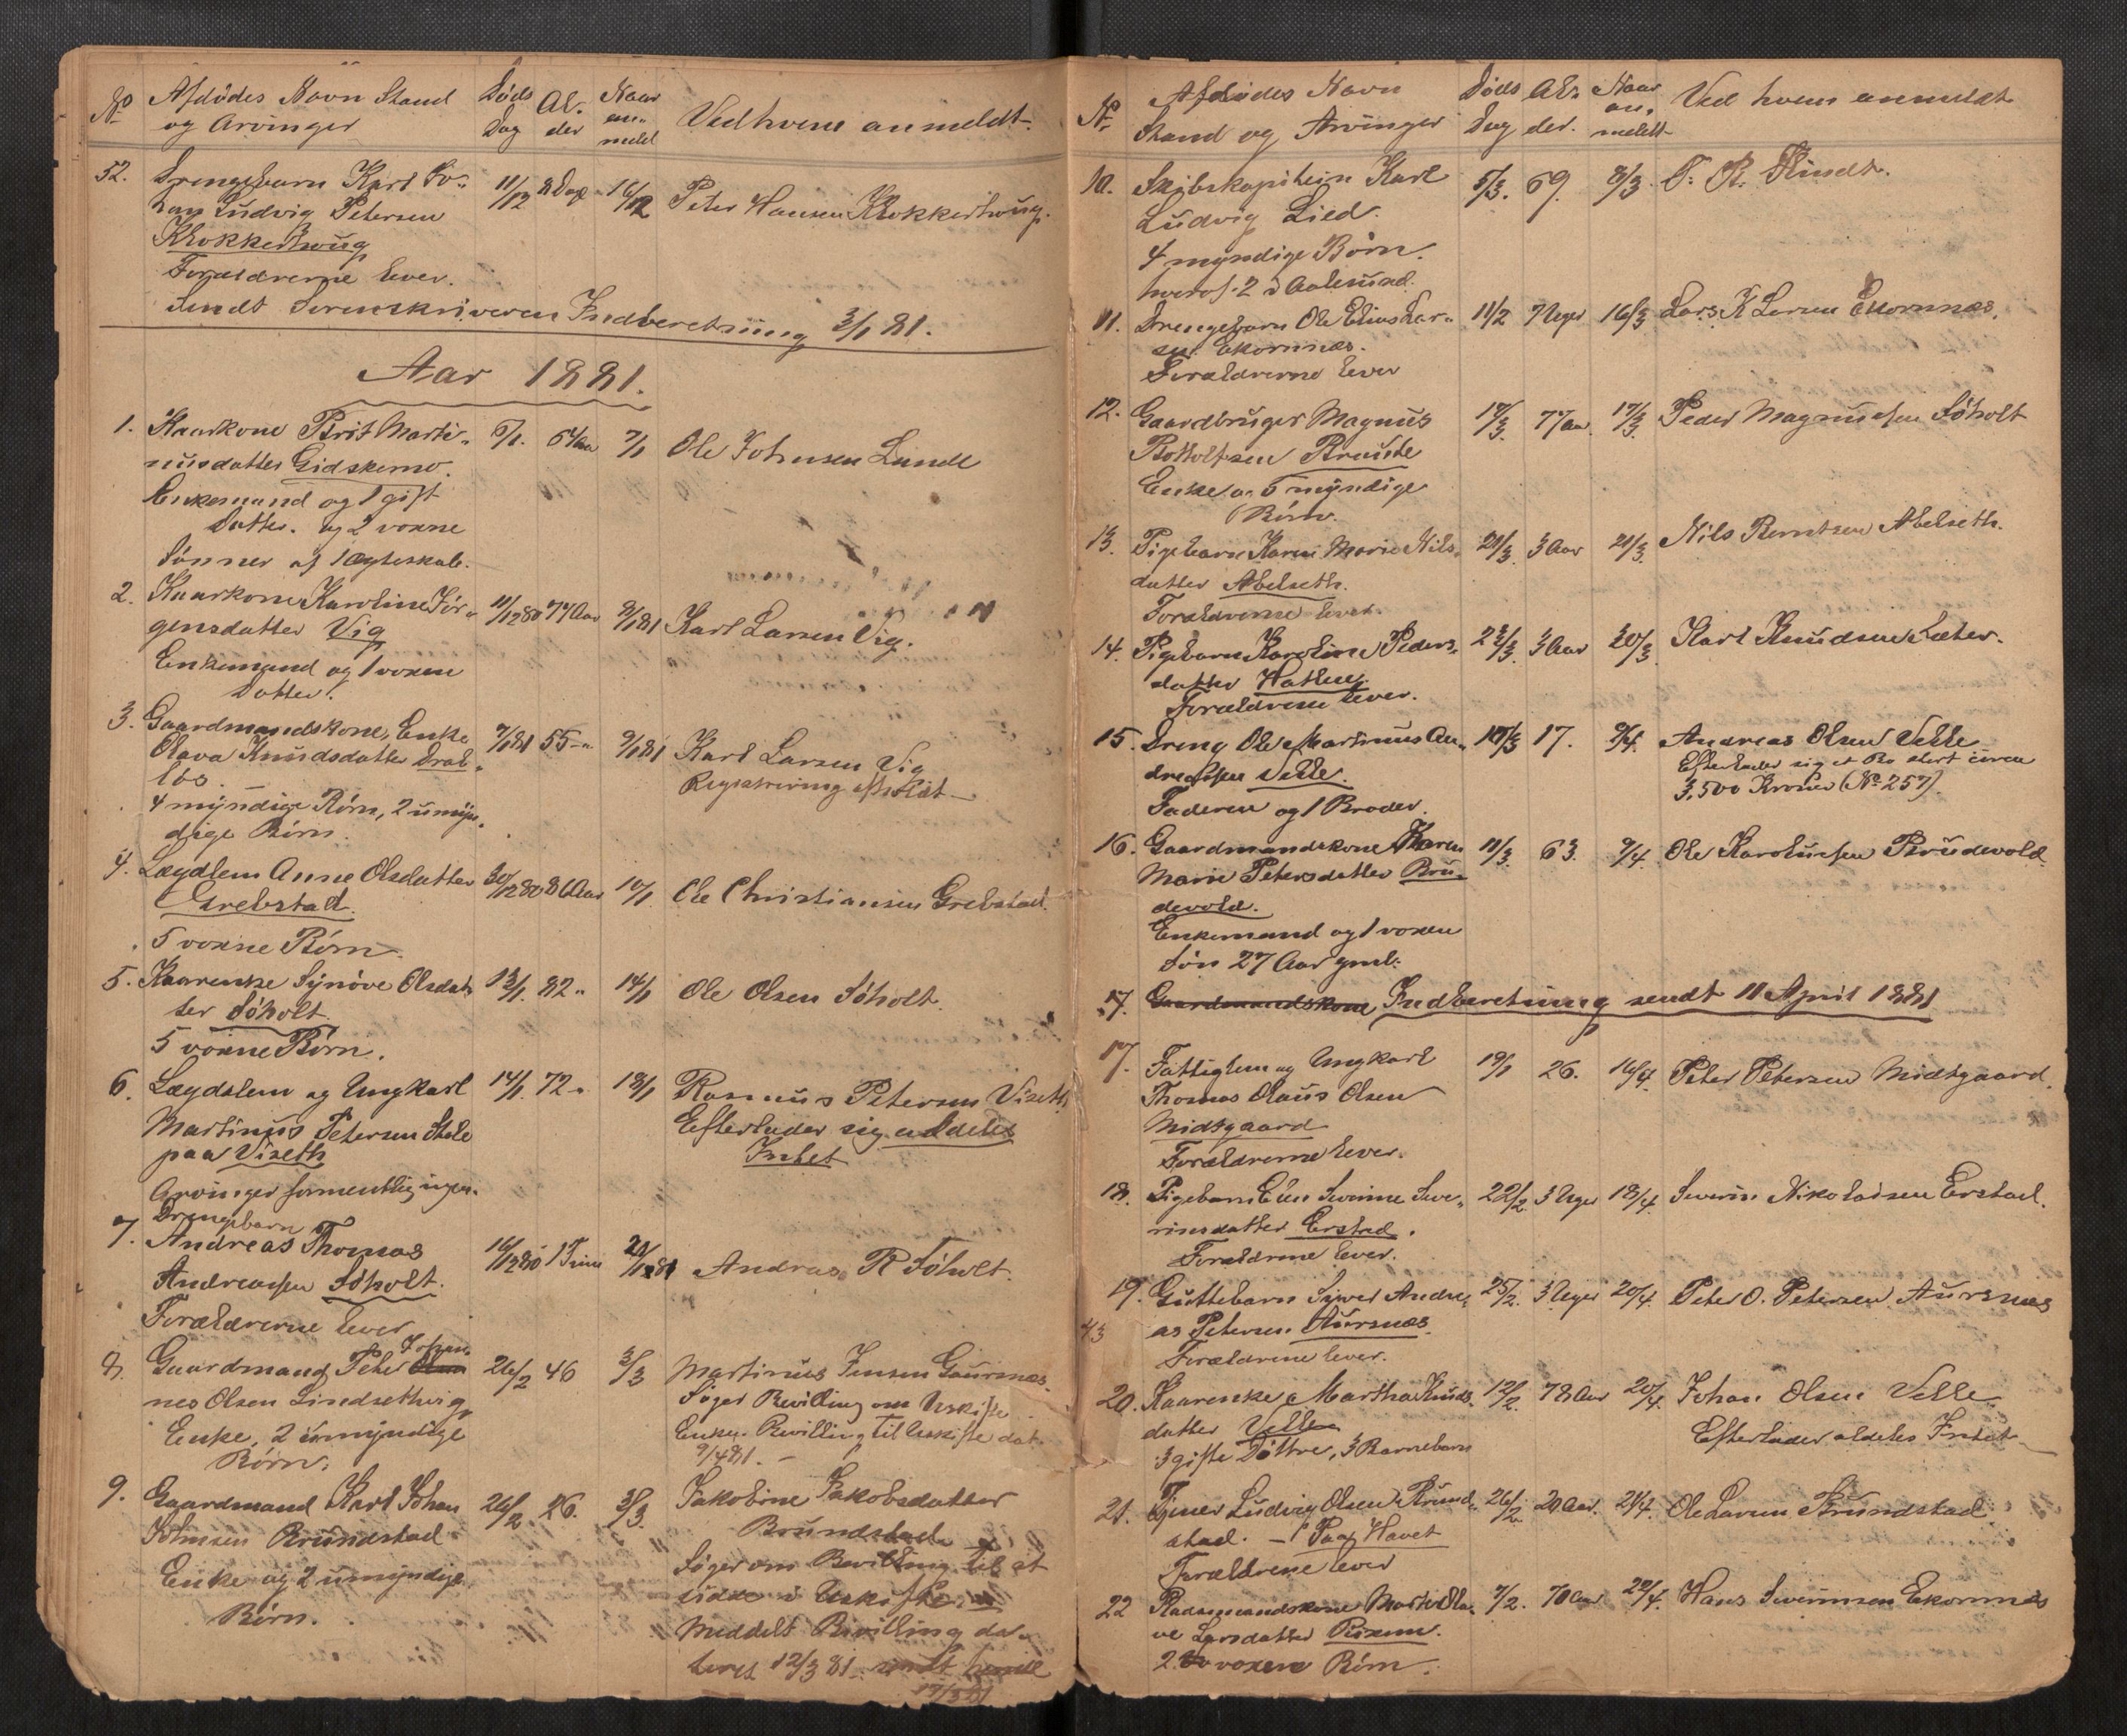 No
Afdødes Navn Stand
og Arvinger
Døds
Dag
Al-
der
Naar
an-
meldt
Ved hvem anmeldt.
52. Drengebarn Karl Jo-
han Ludvig Petersen
Klokkerhaug
Forældrerne lever.
11/12 8 Dage 16/12 Peter Hansen Klokkerhaug.
Sendt Sorenskriveren Indberetning 3/1 81.
Aar 1881.
1. Kaarkone Brit Marti-
nusdatter Gidskemo.
Enkemand og 1 gift
Datter. og 2 voxne
Sønner af 1 ægteskab.
5/1. 64 Aar 7/1 Ole Johnsen Lunde
2. Kaarkone Karoline Jør-
gensdatter Vig
Enkemand og 1 voxen
Datter.
11/12 80 74 Aar 9/1 81 Karl Larsen Vig.
3. Gaardmandskone, Enke
Olava Knudsdatter Drab-
løs.
4 myndige Børn, 2 umyn-
dige Børn.
7/1 81 55 - " 9/1 81 Karl Larsen Vig
Registrering afholdt
4. Lægdlem Anne Olsdatter
Grebstad.
5 voxne Børn.
30/12 80 86 Aar 10/1 Ole Christiansen Grebstad.
5. Kaarenke Synøve Olsdat-
ter Søholt.
5 voxne Børn.
13/1. 82 " 14/1 Ole Olsen Søholt.
6. Lægdslem og Ungkarl
Martinus Petersen Stole
paa Viseth
Arvinger formentlig ingen.
14/1. 72 - " 18/1 Rasmus Petersen Viseth
Efterlader sig aldeles
Intet
7. Drengebarn
Andreas Thomas
Andreassen Søholt.
Forældrerne lever
16/12 80 1 Time 21/1 81 Andreas R Søholt.
8. Gaardmand Peter Johan-
nes Olsen Lindsethvig
Enke, 2 umyndige
Børn.
26/2 46 3/3 Martinus Jensen Gaursnæs.
Søger Bevilling om Uskifte
Enken Bevilling til Uskifte dat.
9/4 81. -
9. Gaardmand Karl Johan
Johnsen Brundstad
Enke og 2 umyndige
Børn.
26/2. 26. 3/3. Jakobine Jakobsdatter
Brundstad
Søger om Bevilling til at
sidde i Uskifte.
Meddelt Bevilling da-
teret 12/3 81 sendt hende
17/3 81
No
Afdødes Navn
Stand og Arvinger
Døds
Dag
Al-
der.
Naar
an-
meldt
Ved hvem anmeldt
10. Skibskaptein Karl
Ludvig Lied.
4 myndige Børn.
hvoraf 2 i Aalesund.
5/3. 69. 8/3 O. R. Flindt.
11. Drengebarn Ole Elias Lar-
sen Ekornnæs.
Forældrerne lever
11/2 7 Uger 16/3 Lars K Larsen Ekornnæs.
12. Gaardbruger Magnus
Bottolfsen Brauste
Enke og 5 myndige
Børn.
17/3. 77 Aar. 17/3. Peder Magnussen Søholt
13. Pigebarn Karen Marie Nils-
datter Abelseth.
Forældrerne lever.
21/3. 3 Aar 21/3. Nils Berntsen Abelseth.
14. Pigebarn Karoline Peders-
datter Hatlen.
Forældrene lever.
23/3. 3 Aar 30/3 Karl Knudsen Sæter.
15. Dreng Ole Martinus An-
dreassen Velle.
Faderen og 1 Broder.
10/3 17. 9/4. Andreas Olsen Velle
Efterlader sig et Bo stort circa
3,500 Kroner (No 257).
16. Gaardmandskone Karen
Marie Petersdatter Bru-
devold.
Enkemand og 1 voxen
Søn 27 Aar gml.
11/3. 63. 9/4. Ole Karolussen Brudevold
17. Gaardmandskone Indberetning sendt 11 April 1881
17. Fattiglem og Ungkarl
Thomas Olaus Olsen
Midtgaard
Forældrerne lever.
19/1 26. 16/4. Peter Petersen Midtgaard.
18. Pigebarn Elen Severine Seve-
rinsdatter Erstad.
Forældrene lever.
22/2. 3 Uger 18/4. Severin Nikolaisen Erstad.
19. Guttebarn Sivert Andre-
as Petersen Aursnæs.
Forældrene lever.
25/2. 3 Uger 20/4. Peter O. Petersen Aursnæs
43
20. Kaarenke Martha Knuds-
datter Velle
3 gifte Døttre, 3 Barnebarn
12/2. 78 Aar 20/4. Johan Olsen Velle
Efterlader aldeles Intet
21. Tjener Ludvig Olsen Brund-
stad. - Paa Havet
Forældrene lever
26/2. 20 Aar. 21/4. Ole Larsen Brundstad
22 Pladsmandskone Marte Ola-
ve Larsdatter
2 voxene Børn.
7/2. 70 Aar 22/4. Hans Severinsen Ekornnæs